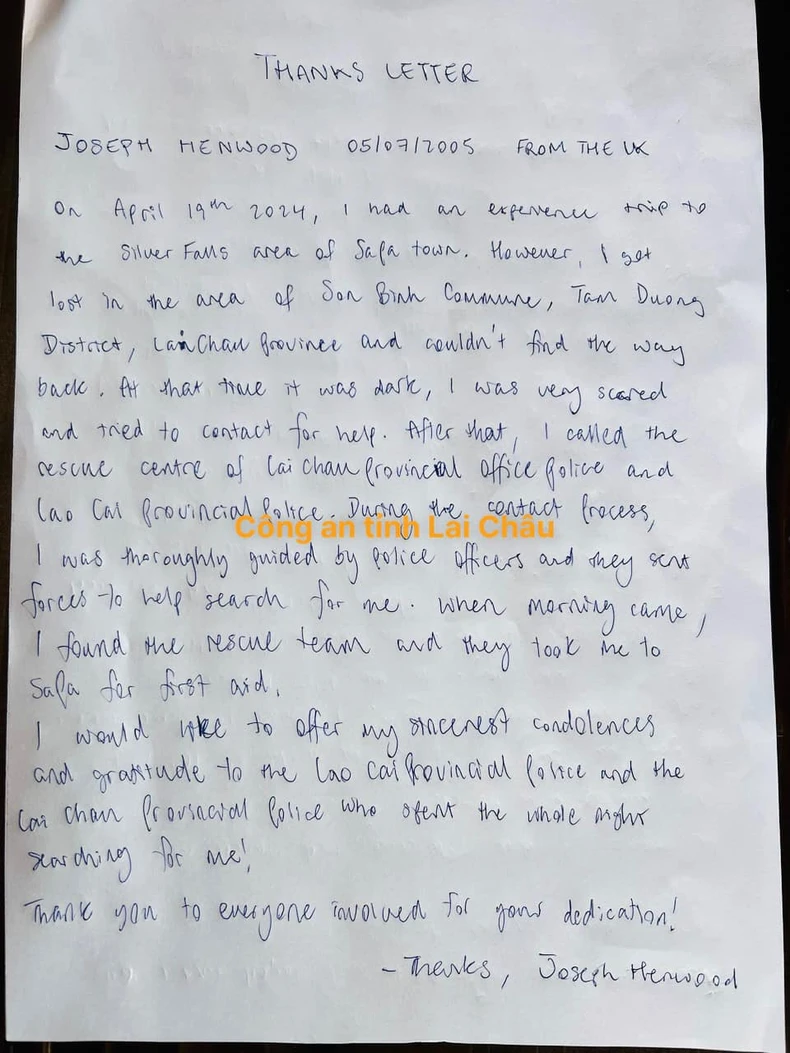 THANKS LETTER
JOSEPH HENWOOD 05/07/2005 FROM THE UK
On April 19th 2024, I had an experience trip to
the Silver Falls area of Sapa town. However, I got
lost in the area of Son Binh Commune, Tam Duong
District, Lai Chau Province and couldn't find the way
back. At that time it was dark, I was very scared
and tried to contact for help. After that, I called the
rescue centre of Lai Chau Provincial office Police and
Lao Cai Provincial Police. During the contact Process,
Công an tỉnh Lai Châu
I was thoroughly guided by police officers and they sent
forces to help search for me. When morning came,
I found the rescue team and they took me to
Sapa for first aid.
I would like to offer my sincerest condolences
and gratitude to the Lao Cai Provincial Police and the
Lai Chau Provincial Police who spent the whole night
searching for me!
Thank you to everyone involved for your dedication!
- Thanks, Joseph Henwood